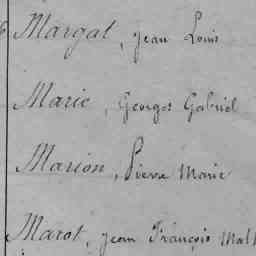 Margat, Jean Louis
Marie, Georges Gabriel
Marion, Pierre Marie
Marot, Jean François